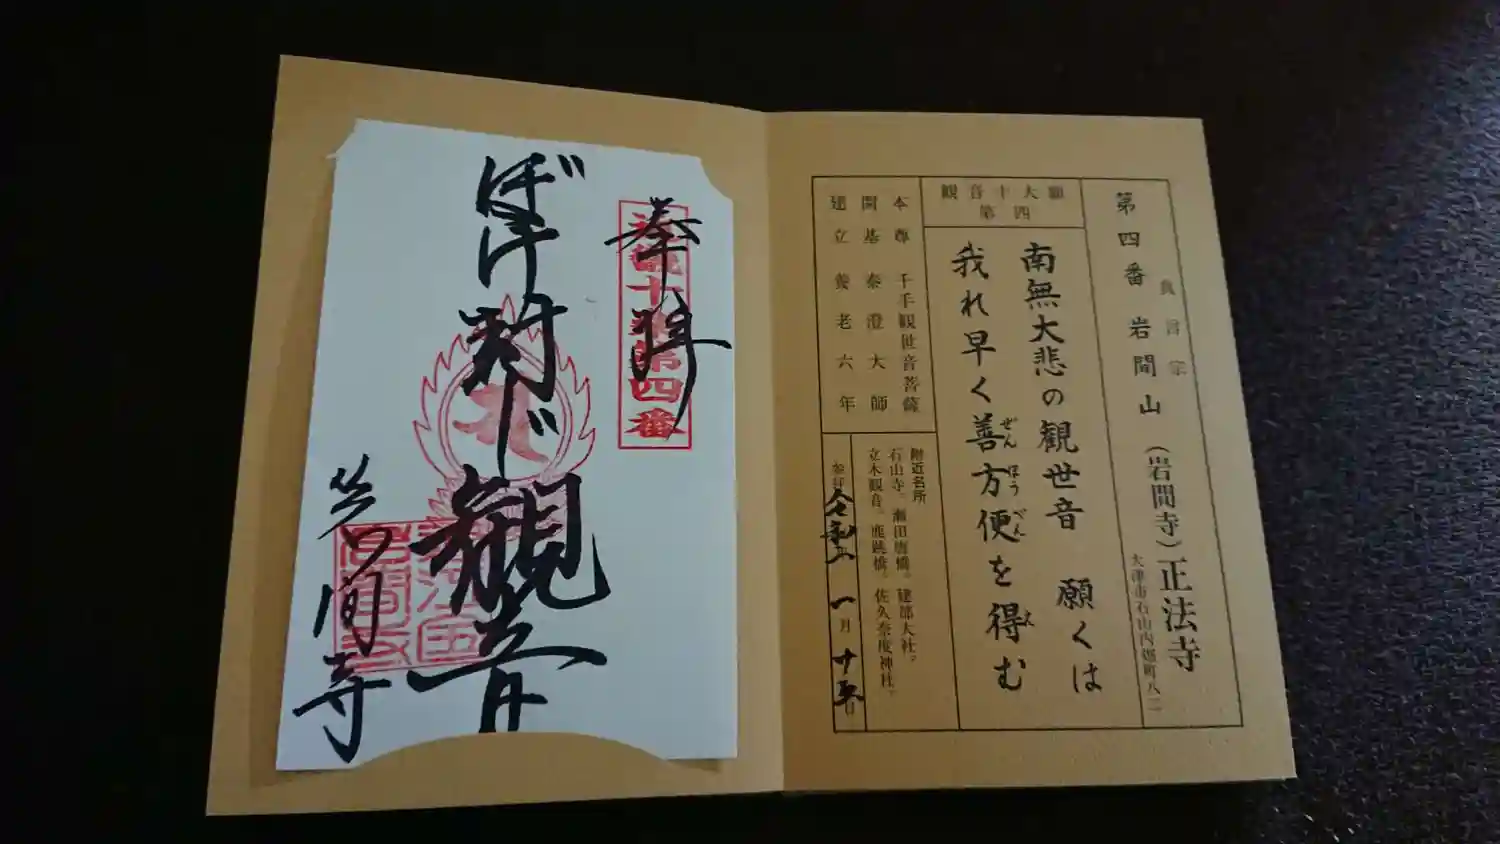 真言宗
第四番 岩間山(岩間寺)正法寺
大津市石山内畑町八二
観音十大願
第四
南無大悲の観世音 願くは
我れ早く善方便を得む
ぜんほうべん
え
本尊 千手観世音菩薩
開基 泰澄大師
建立 養老六年
附近名所
石山寺。瀬田唐橋。建部大社。
立木観音。鹿跳橋。佐久奈度神社。
令和二 一月 十五日
奉拝
第四番
ぼけ封じ
観音
岩間寺